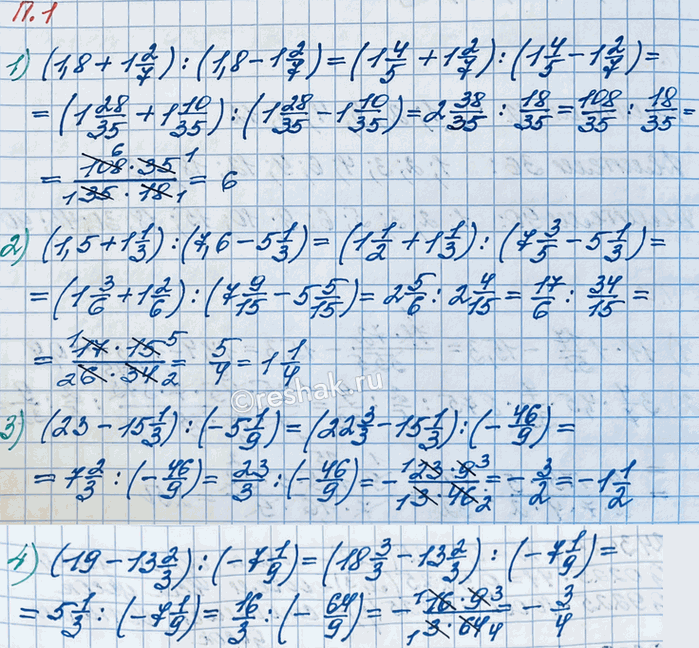 П.1
1) (1,8 + 1 2/7) : (1,8 - 1 2/7) = (1 4/5 + 1 2/7) : (1 4/5 - 1 2/7) =
= (1 28/35 + 1 10/35) : (1 28/35 - 1 10/35) = 2 38/35 : 18/35 = 108/35 : 18/35 =
= (108 6 · 35 1)/(1 35 · 18 1) = 6
2) (1,5 + 1 1/3) : (7,6 - 5 1/3) = (1 1/2 + 1 1/3) : (7 3/5 - 5 1/3) =
= (1 3/6 + 1 2/6) : (7 9/15 - 5 5/15) = 2 5/6 : 2 4/15 = 17/6 : 34/15 =
= (1 17 · 15 5)/(2 6 · 34 2) = 5/4 = 1 1/4
©reshak.ru
3) (23 - 15 1/3) : (-5 1/9) = (22 3/3 - 15 1/3) : (- 46/9) =
= 7 2/3 : (- 46/9) = 23/3 : (- 46/9) = - (1 23 · 9 3)/(1 3 · 46 2) = - 3/2 = -1 1/2
4) (19 - 13 2/3) : (-7 1/9) = (18 3/3 - 13 2/3) : (-7 1/9) =
= 5 1/3 : (-7 1/9) = 16/3 : (- 64/9) = - (1 16 · 9 3)/(1 3 · 64 4) = - 3/4